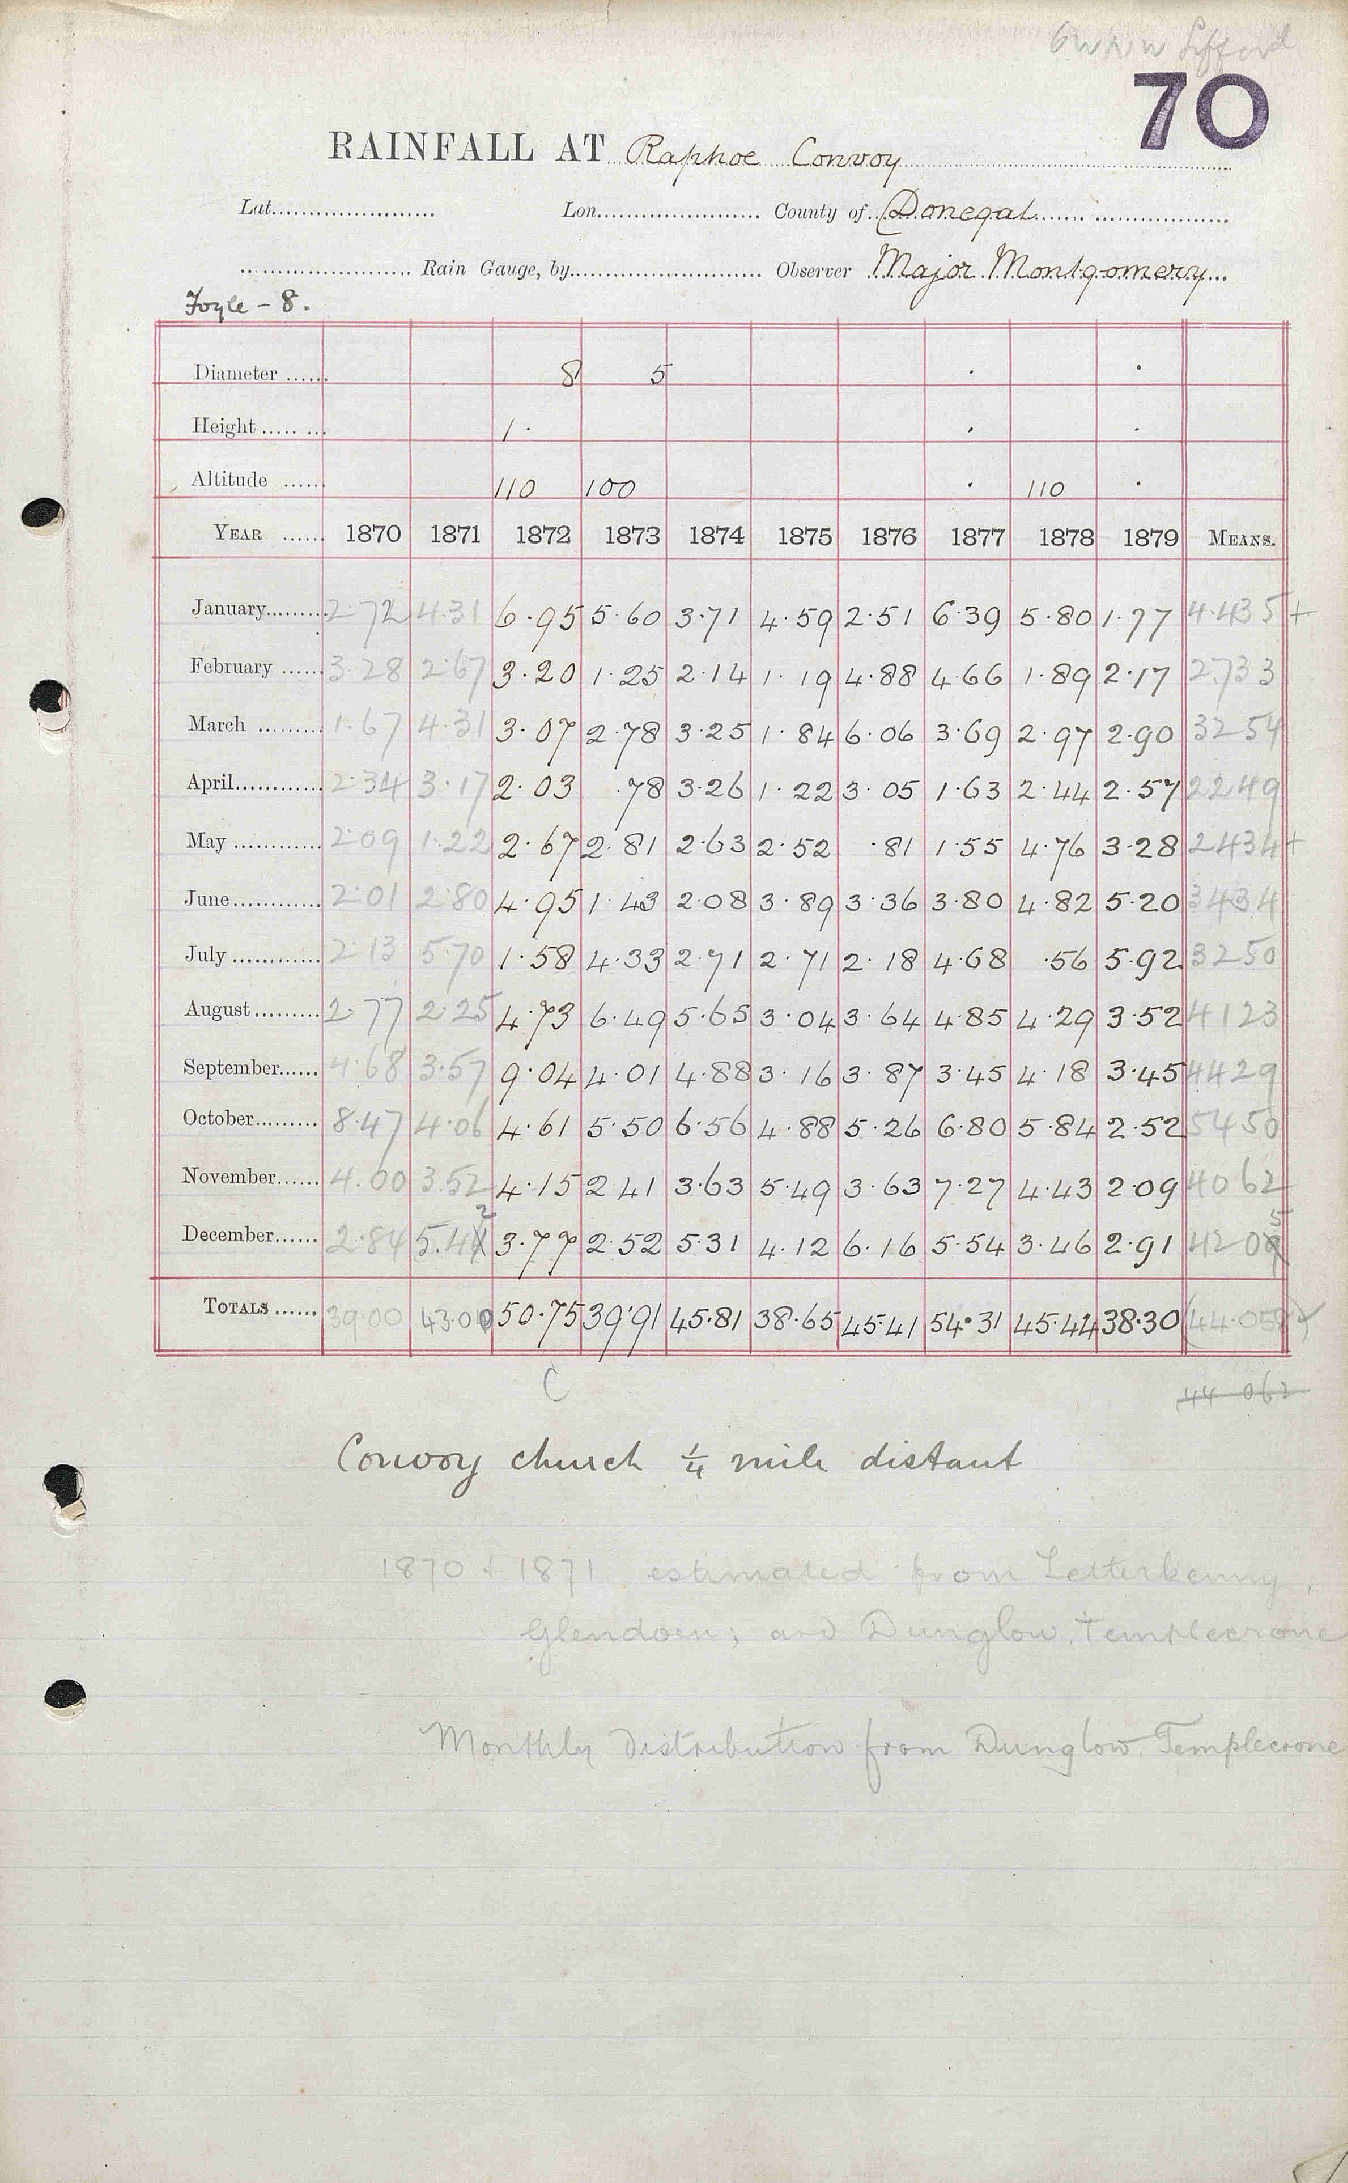 6 W N W Lifford
70
RAINFALL AT Raphoe Convoy
Lat. Lon. County of Donegal
Rain Gauge, by Observer Major Montgomery
Foyle - 8.
Diameter 8 5
Height 1.
Altitude 110 100 110
YEAR 1870 1871 1872 1873 1874 1875 1876 1877 1878 1879 MEANS.
January 2.72 4.31 6.95 5.60 3.71 4.59 2.51 6.39 5.80 1.77 4.435+
February 3.28 2.67 3.20 1.25 2.14 1.19 4.88 4.66 1.89 2.17 2.733
March 1.67 4.31 3.07 2.78 3.25 1.84 6.06 3.69 2.97 2.90 3254
April 2.34 3.17 2.03 .78 3.26 1.22 3.05 1.63 2.44 2.57 2249
May 2.09 1.22 2.67 2.81 2.63 2.52 .81 1.55 4.76 3.28 2434+
June 2.01 2.80 4.95 1.43 2.08 3.89 3.36 3.80 4.82 5.20 3434
July 2.13 5.70 1.58 4.33 2.71 2.71 2.18 4.68 .56 5.92 3250
August 2.77 2.25 4.73 6.49 5.65 3.04 3.64 4.85 4.29 3.52 4123
September 4.68 3.57 9.04 4.01 4.88 3.16 3.87 3.45 4.18 3.45 4429
October 8.47 4.06 4.61 5.50 6.56 4.88 5.26 6.80 5.84 2.52 5450
November 4.00 3.52 4.15 2.41 3.63 5.49 3.63 7.27 4.43 2.09 4062
December 2.84 5.42 3.77 2.52 5.31 4.12 6.16 5.54 3.46 2.91 4205
TOTALS 39.00 43.00 50.75 39.91 45.81 38.65 45.41 54.31 45.44 38.30 (44.058)
C
44 062
Convoy church ¼ mile distant
1870 + 1871 estimated from Letterkenny,
Glendoen; and Dunglow, Templecrone
Monthly distribution from Dunglow. Templecrone